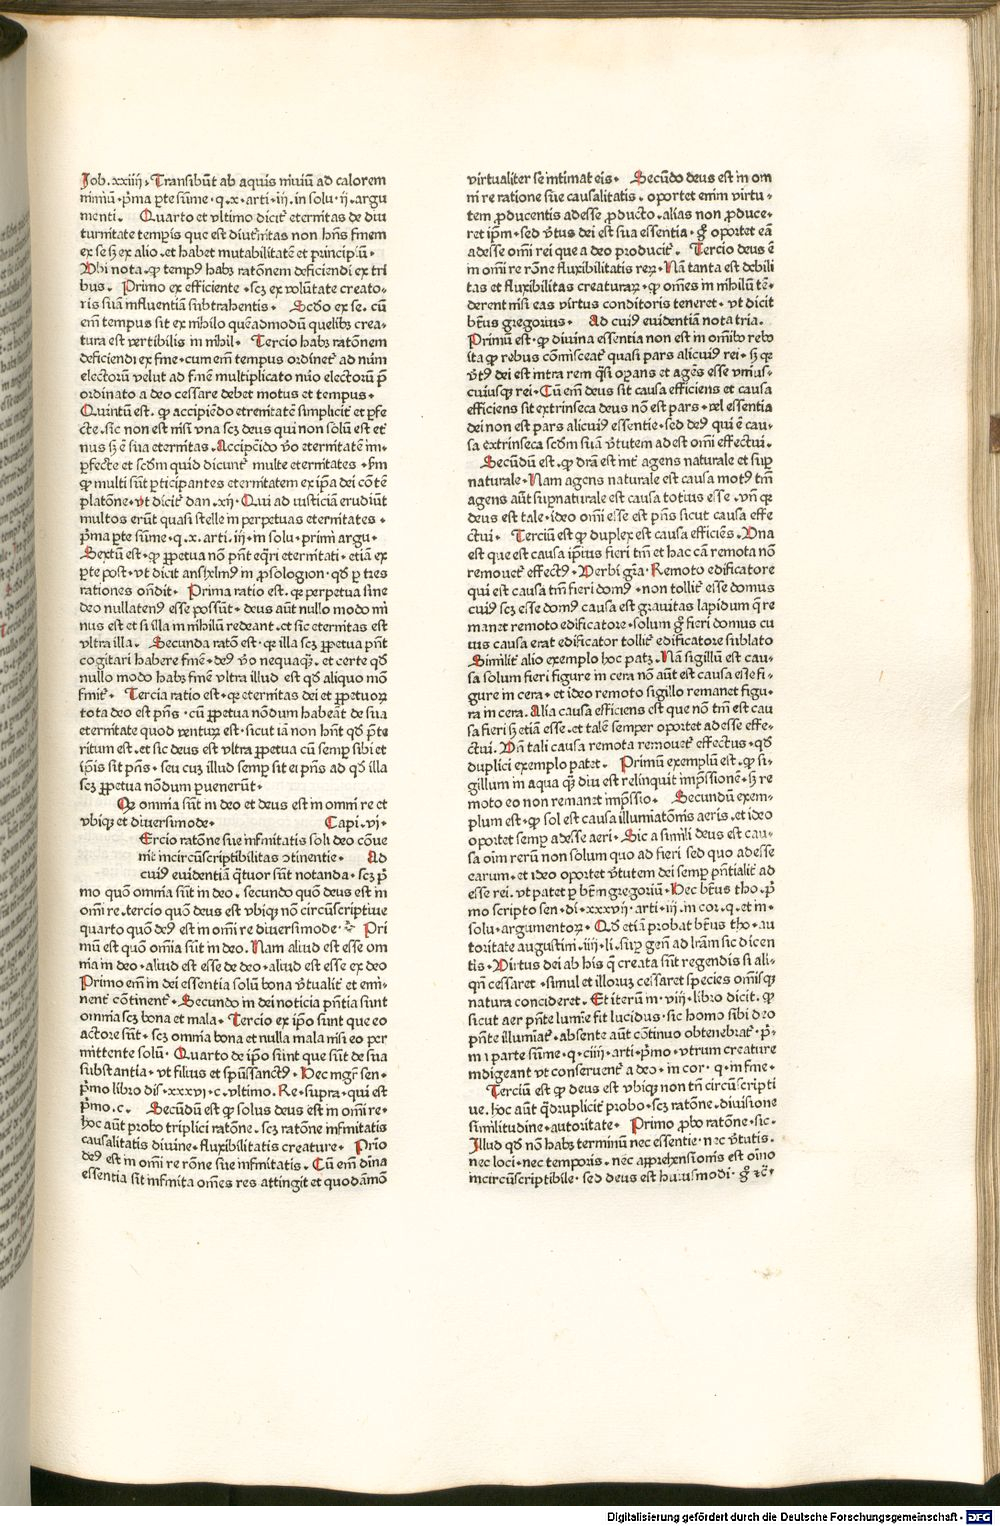 Job. xxiiii. Transibūt ab aquis niuiū ad calorem
nimiū. p̄ma p̄te sūme. q. x. arti. iij. in solu. ij. argu
menti. Quarto et vltimo dicit᷑ eternitas de diu
turnitate temp̄is que est diut᷑nitas non hn̄s finem
ex se sꝫ ex alio. et habet mutabilitatē et principiū.
Vbi nota. ꝙ tempꝰ habꝫ ratōnem deficiendi ex tri
bus. Primo ex efficiente. scꝫ ex volūtate creato-
ris suā influentiā subtrahentis. Scďo ex se. cū
em̄ tempus sit ex nihilo queadmodū quelibꝫ crea-
tura est vertibilis in nihil. Tercio habꝫ ratōnem
deficiendi ex fine. cum em̄ tempus ordinet᷑ ad nūm
electorū velut ad finē multiplicato nūo electorū p̄
ordinato a deo cessare debet motus et tempus.
Quintū est. ꝙ accipiēdo etrenitatē simplicit᷑ et ꝑfe
cte. sic non est nisi vna scꝫ deus qui non solū est et᷑
nus sꝫ ē sua eternitas. Accipēido v̄o eternitatē im-
ꝑfecte et scďm quid dicunt᷑ multe eternitates. fm
ꝙ multi sūt ꝑticipantes eternitatem ex ip̄a dei cōtē
platōne. vt dicit᷑ dan. xij. Qui ad iusticiā erudiūt
multos erūt quasi stelle in perpetuas eternitates.
p̄ma p̄te sūme. q. x. arti. iij. in solu. primi argu.
Sextū est. ꝙ ꝑpetua nō pn̄t eq̄ri eternitati. etiā ex
p̄te post. vt dicit anshelmꝰ in ꝓsologion. qď ꝑ tres
rationes on̄dit. Prima ratio est. ꝙ perpetua sine
deo nullatenꝰ esse possūt. deus aūt nullo modo mi
nus est et si illa in nihilū redeant. et sic eternitas est
vltra illa. Secunda ratō est. ꝙ illa scꝫ ꝑpetua pn̄t
cogitari habere finē. deꝰ v̄o nequaqꝫ. et certe qď
nullo modo habꝫ finē vltra illud est qď aliquo mō
finit᷑. Tercia ratio est. ꝙ eternitas dei et ꝑpetuoꝝ
tota deo est pn̄s. cū ꝑpetua nōdum habeāt de sua
eternitate quod venturū est. sicut iā non hn̄t qď p̄te
ritum est. et sic deus est vltra ꝑpetua cū semꝑ sibi et
ip̄is sit pn̄s. seu cuꝫ illud semꝑ sit ei pn̄s ad qď illa
scꝫ ꝑpetua nōdum ꝑuenerūt.
Qꝫ omnia sūt in deo et deus est in omni re et
vbiqꝫ et diuersimode. Capi. vi.
Ercio ratōne sue infinitatis soli deo cōue
nit᷑ incircūscriptibilitas ↄtinentie. Ad
cuiꝰ euidentiā q̄tuor sūt notanda. scꝫ p̄
mo quō omnia sūt in deo. secundo quō deus est in
om̄i re. tercio quō deus est vbiqꝫ nō circūscriptiue
quarto quō deꝰ est in om̄i re diuersimode. Pri
mū est quō om̄ia sūt in deo. Nam aliud est esse om
nia in deo. aliud est esse de deo. aliud est esse ex deo
Primo em̄ in dei essentia solū bona v̄tualit᷑ et emi-
nent᷑ cōtinent᷑. Secundo in dei noticia pn̄tia sunt
omnia scꝫ bona et mala. Tercio ex ip̄o sunt que eo
actore sūt. scꝫ omnia bona et nulla mala nisi eo per
mittente solū. Quarto de ip̄o sunt que sūt de sua
substantia. vt filius et spūssanctꝰ. Hec mgr̄ sen-
p̄mo libro dis. xxxvi. c. vltimo. Re. supra. qui est
p̄mo. c. Secūdū est ꝙ solus deus est in om̄i re.
hoc aūt probo triplici ratōne. scꝫ ratōne infinitatis
causalitatis diuine. fluxibilitatis creature. Prio
deꝰ est in om̄i re rōne sue infinitatis. Cū em̄ diīna
essentia sit infinita om̄es res attingit et quodāmō
virtualiter se intimat eis. Secūdo deus est in om
ni re ratione sue causalitatis. oportet enim virtu-
tem ꝓducentis adesse ꝓducto. alias non ꝓduce-
ret ip̄m. sed v̄tus dei est sua essentia. gͦ oportet eā
adesse omni rei que a deo producit᷑. Tercio deus ē
in om̄i re rōne fluxibilitatis reꝝ. Nā tanta est debili
tas et fluxibilitas creaturaꝝ. ꝙ om̄es in nihilū tē-
derent nisi eas virtus conditoris teneret. vt dicit
bt̄us gregorius. Ad cuiꝰ euidentiā nota tria.
Primū est. ꝙ diuina essentia non est in omībꝰ rebꝰ
ita ꝙ rebus cōmisceat᷑ quasi pars alicuiꝰ rei. sꝫ ꝙ
v̄tꝰ dei est intra rem q̄si oꝑans et agēs esse vniꝰs-
cuiusqꝫ rei. Cū em̄ deus sit causa efficiens et causa
efficiens sit extrinseca deus nō est pars. vel essentia
dei non est pars alicuiꝰ essentie. sed deꝰ qui ē cau-
sa extrinseca scďm suā v̄tutem adest om̄i effectui.
Secūdū est. ꝙ dr̄a est int᷑ agens naturale et suꝑ
naturale. Nam agens naturale est causa motꝰ tm̄
agens aūt suꝑnaturale est causa totius esse. vn̄ ꝙ
deus est tale. ideo om̄i esse est pn̄s sicut causa effe
ctui. Terciū est ꝙ duplex est causa efficiēs. Vna
est que est causa ip̄ius fieri tm̄ et hac cā remota nō
remouet᷑ effectꝰ. Verbi gr̄a. Remoto edificatore
qui est causa tm̄ fieri domꝰ. non tollit᷑ esse domus
cuiꝰ scꝫ esse domꝰ causa est grauitas lapidum q̄ re
manet remoto edificatore. solum gͦ fieri domus cu
ius causa erat edificator tollit᷑ edificatore sublato
Similit᷑ alio exemplo hoc patꝫ. Nā sigillū est cau-
sa solum fieri figure in cera nō aūt est causa esse fi-
gure in cera. et ideo remoto sigillo remanet figu-
ra in cera. Alia causa efficiens est que non tm̄ est cau
sa fieri sꝫ etiā esse. et talē semper oportet adesse effe-
ctui. Vn̄ tali causa remota remouet᷑ effectus. qď
duplici exemplo patet. Primū exemplū est. ꝙ si-
gillum in aqua qꝫ diu est relinquit imp̄ssionē. sꝫ re
moto eo non remanꝫ imp̄ssio. Secundū exem-
plum est. ꝙ sol est causa illuminatōnis aeris. et ideo
oportet semꝑ adesse aeri. Sic a simili deus est cau-
sa oīm rerū non solum quo ad fieri sed quo ad esse
earum. et ideo oportet v̄tutem dei semꝑ pn̄tialit᷑ ad
esse rei. vt patet ꝑ bt̄m gregoriū. Hec bt̄us tho. p̄
mo scripto sen. di. xxxvij. arti. iij. in cor. q. et in.
solu. argumentoꝝ. Qď etiā probat bt̄us tho. au
toritate augustini. iiij. li. suꝑ gen̄ ad lr̄am sic dicen
tis. Virtus dei ab his q̄ creata sūt regendis si ali-
qn̄ cessaret. simul et illorꝫ cessaret species om̄isqꝫ
natura concideret. Et iterū in. viij. libro dicit. ꝙ
sicut aer pn̄te lumīe fit lucidus. sic homo sibi deo
pn̄te illumīat᷑. absente aūt cōtinuo obtenebrat᷑. p̄-
m i parte sūme. q. ciiij. arti. p̄mo. vtrum creature
indigeant vt conseruent᷑ a deo. in cor. q. in fine.
Terciū est ꝙ deus est vbiqꝫ non tm̄ circūscripti
ue. hoc aūt q̄druplicit᷑ probo. scꝫ ratōne. diuisione
similitudine. autoritate. Primo ꝓbo ratōne. sic.
Illud qď nō habꝫ terminū nec essentie. nec v̄tutis.
nec loci. nec temporis. nec apprehensiōnis est oīno
incircūscriptibile. sed deus est huiusmodi. gͦ ⁊c̄.
Digitalisierung gefördert durch die Deutsche Forschungsgemeinschaft - DFG